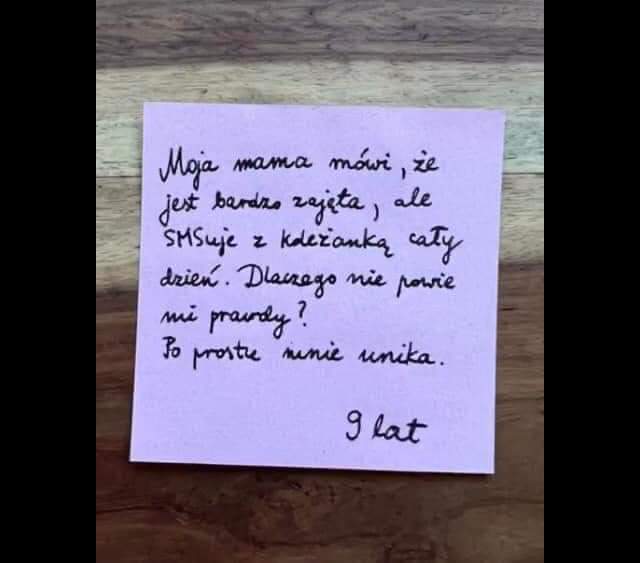 Moja mama mówi, że
jest bardzo zajęta, ale
SMSuje z koleżanką cały
dzień. Dlaczego nie powie
mi prawdy?
Po prostu mnie unika.
9 lat